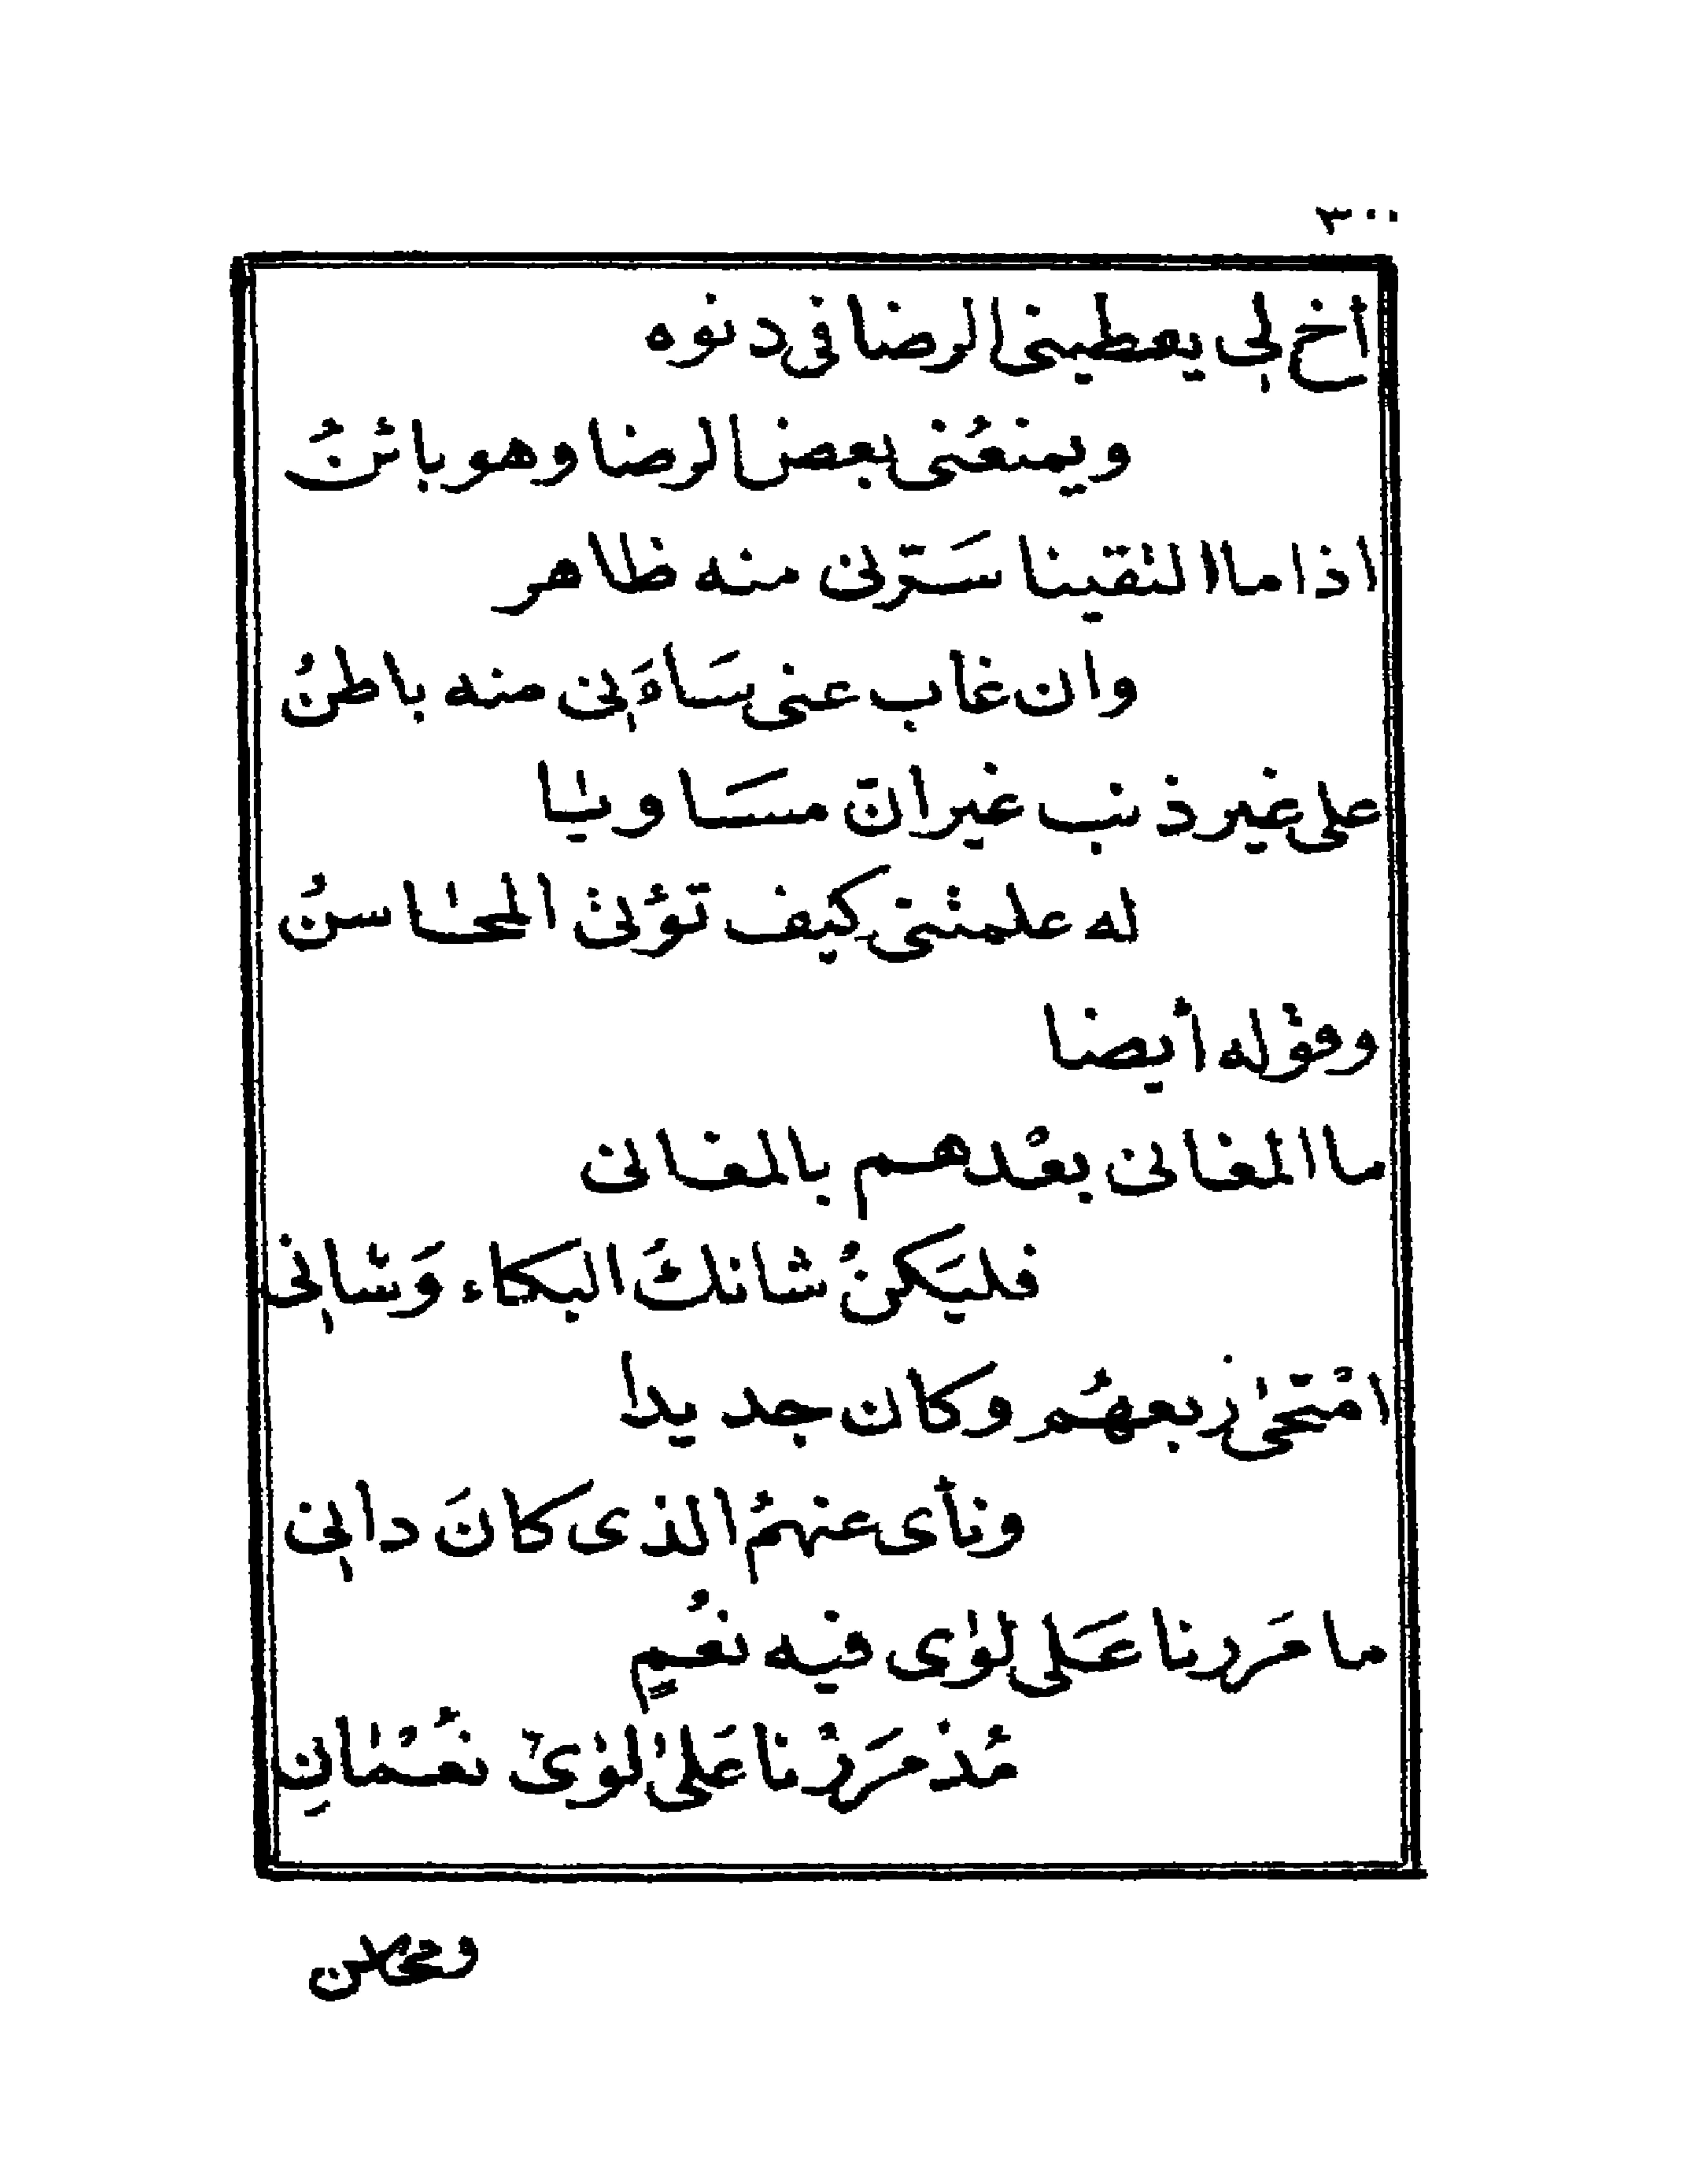 ٣٠٠
أخ لي يعطينى الرضا فى دنوه
ويمنعُنى بعض الرضا وهو بائنُ
اذا ما التقينا سَرّنى منه ظاهر
وان غاب عنى سَاءَنِى منه باطنُ
على غير ذنب غير انّ مسَاويًا
له علمتنى كيف تؤتى المحَاسنُ
وقوْله أيضا
ما المغانى بعْدهم بالمغانى
فليَكنْ شانكُ البكاء وَشانِى
امْتحىٰ ربعهُم وكان جديدا
ونأى عنهمُ الذى كانَ دانِى
ما مَررنا عَلى لوٰى فيه نعُمٍ
مُذ مَررْنا عَلىٰ لوٰى نعُمْانِ